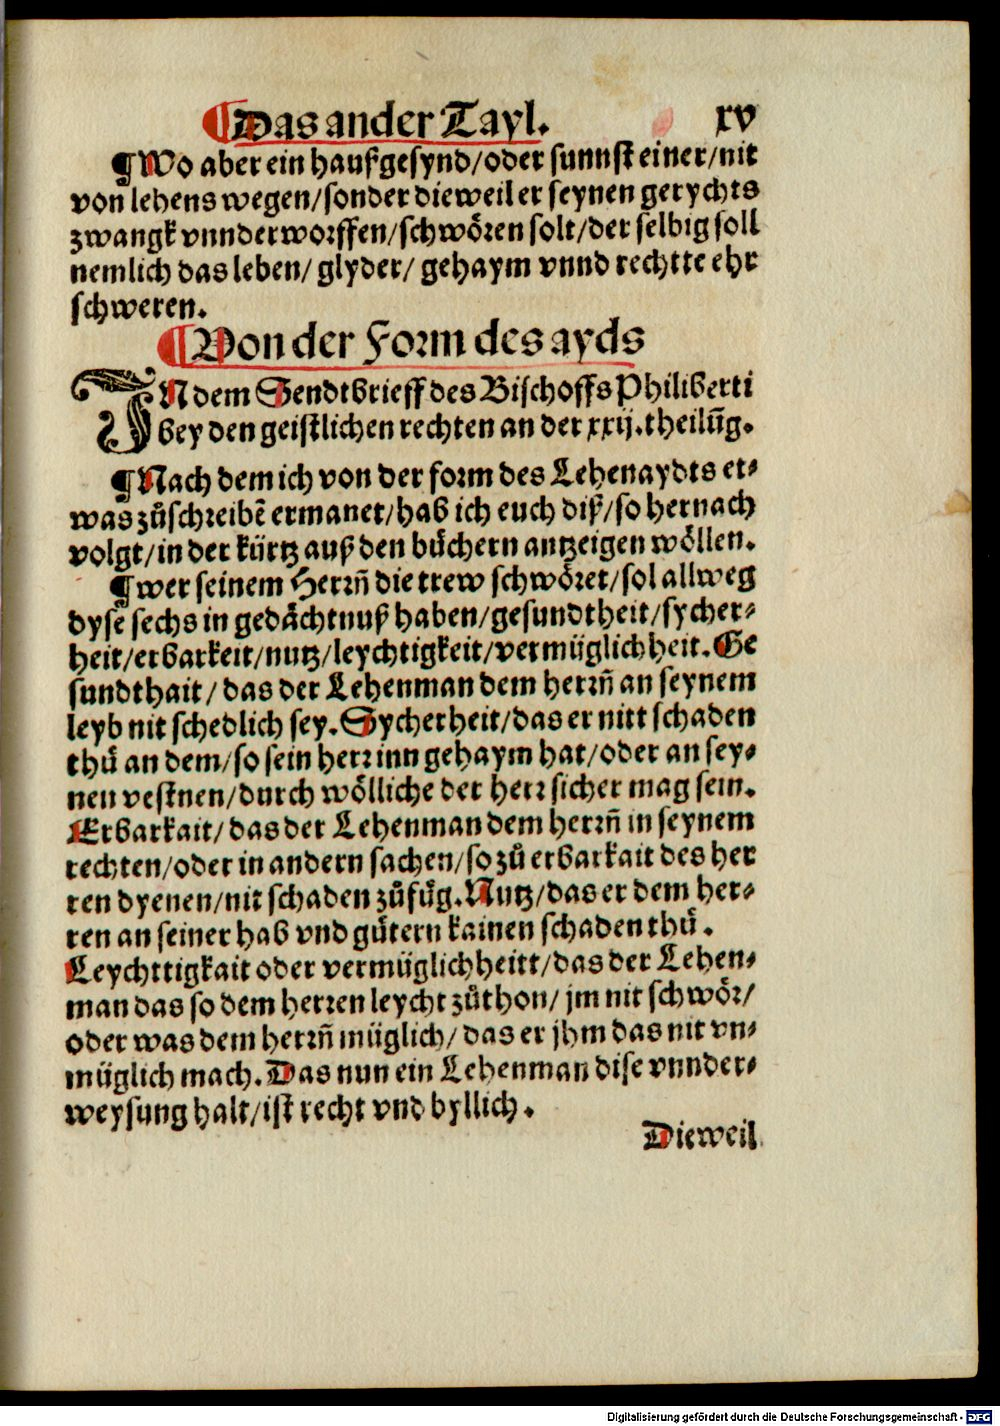 ¶Das ander Tayl. xv
¶Wo aber ein haußgesynd/oder sunnst einer/nit
von lehens wegen/sonder dieweil er seynen gerychts
zwangk vnnderworffen/schwören solt/der selbig soll
nemlich das leben/ glyder/ gehaym vnnd rechtte ehr
schweren.
¶Von der Form des ayds
IN dem Sendtbrieff des Bischoffs Philiberti
bey den geistlichen rechten an der xxij.theilūg.
¶Nach dem ich von der form des Lehenaydts et⸗
was zůschreibē ermanet/hab ich euch diß/so hernach
volgt/in der kürtz auß den bůchern antzeigen wöllen.
¶wer seinem Herrn̄ die trew schwöret/sol allweg
dyse sechs in gedächtnuß haben/gesundtheit/sycher⸗
heit/erbarkeit/nutz/leychtigkeit/vermüglichheit.Ge
sundthait/das der Lehenman dem herrn̄ an seynem
leyb nit schedlich sey.Sycherheit/das er nitt schaden
thů an dem/so sein herr inn gehaym hat/oder an sey⸗
nen vestnen/durch wölliche der herr sicher mag sein.
Erbarkait/das der Lehenman dem herrn̄ in seynem
rechten/oder in andern sachen/so zů erbarkait des her
ren dyenen/nit schaden zůfůg.Nutz/das er dem her⸗
ren an seiner hab vnd gůtern kainen schaden thů.
Leychttigkait oder vermüglichheitt/das der Lehen⸗
man das so dem herren leycht zůthon/ jm nit schwör/
oder was dem herrn̄ müglich/ das er jhm das nit vn⸗
müglich mach.Das nun ein Lehenman dise vnnder⸗
weysung halt/ist recht vnd byllich.
Dieweil
Digitalisierung gefördert durch die Deutsche Forschungsgemeinschaft - DFG